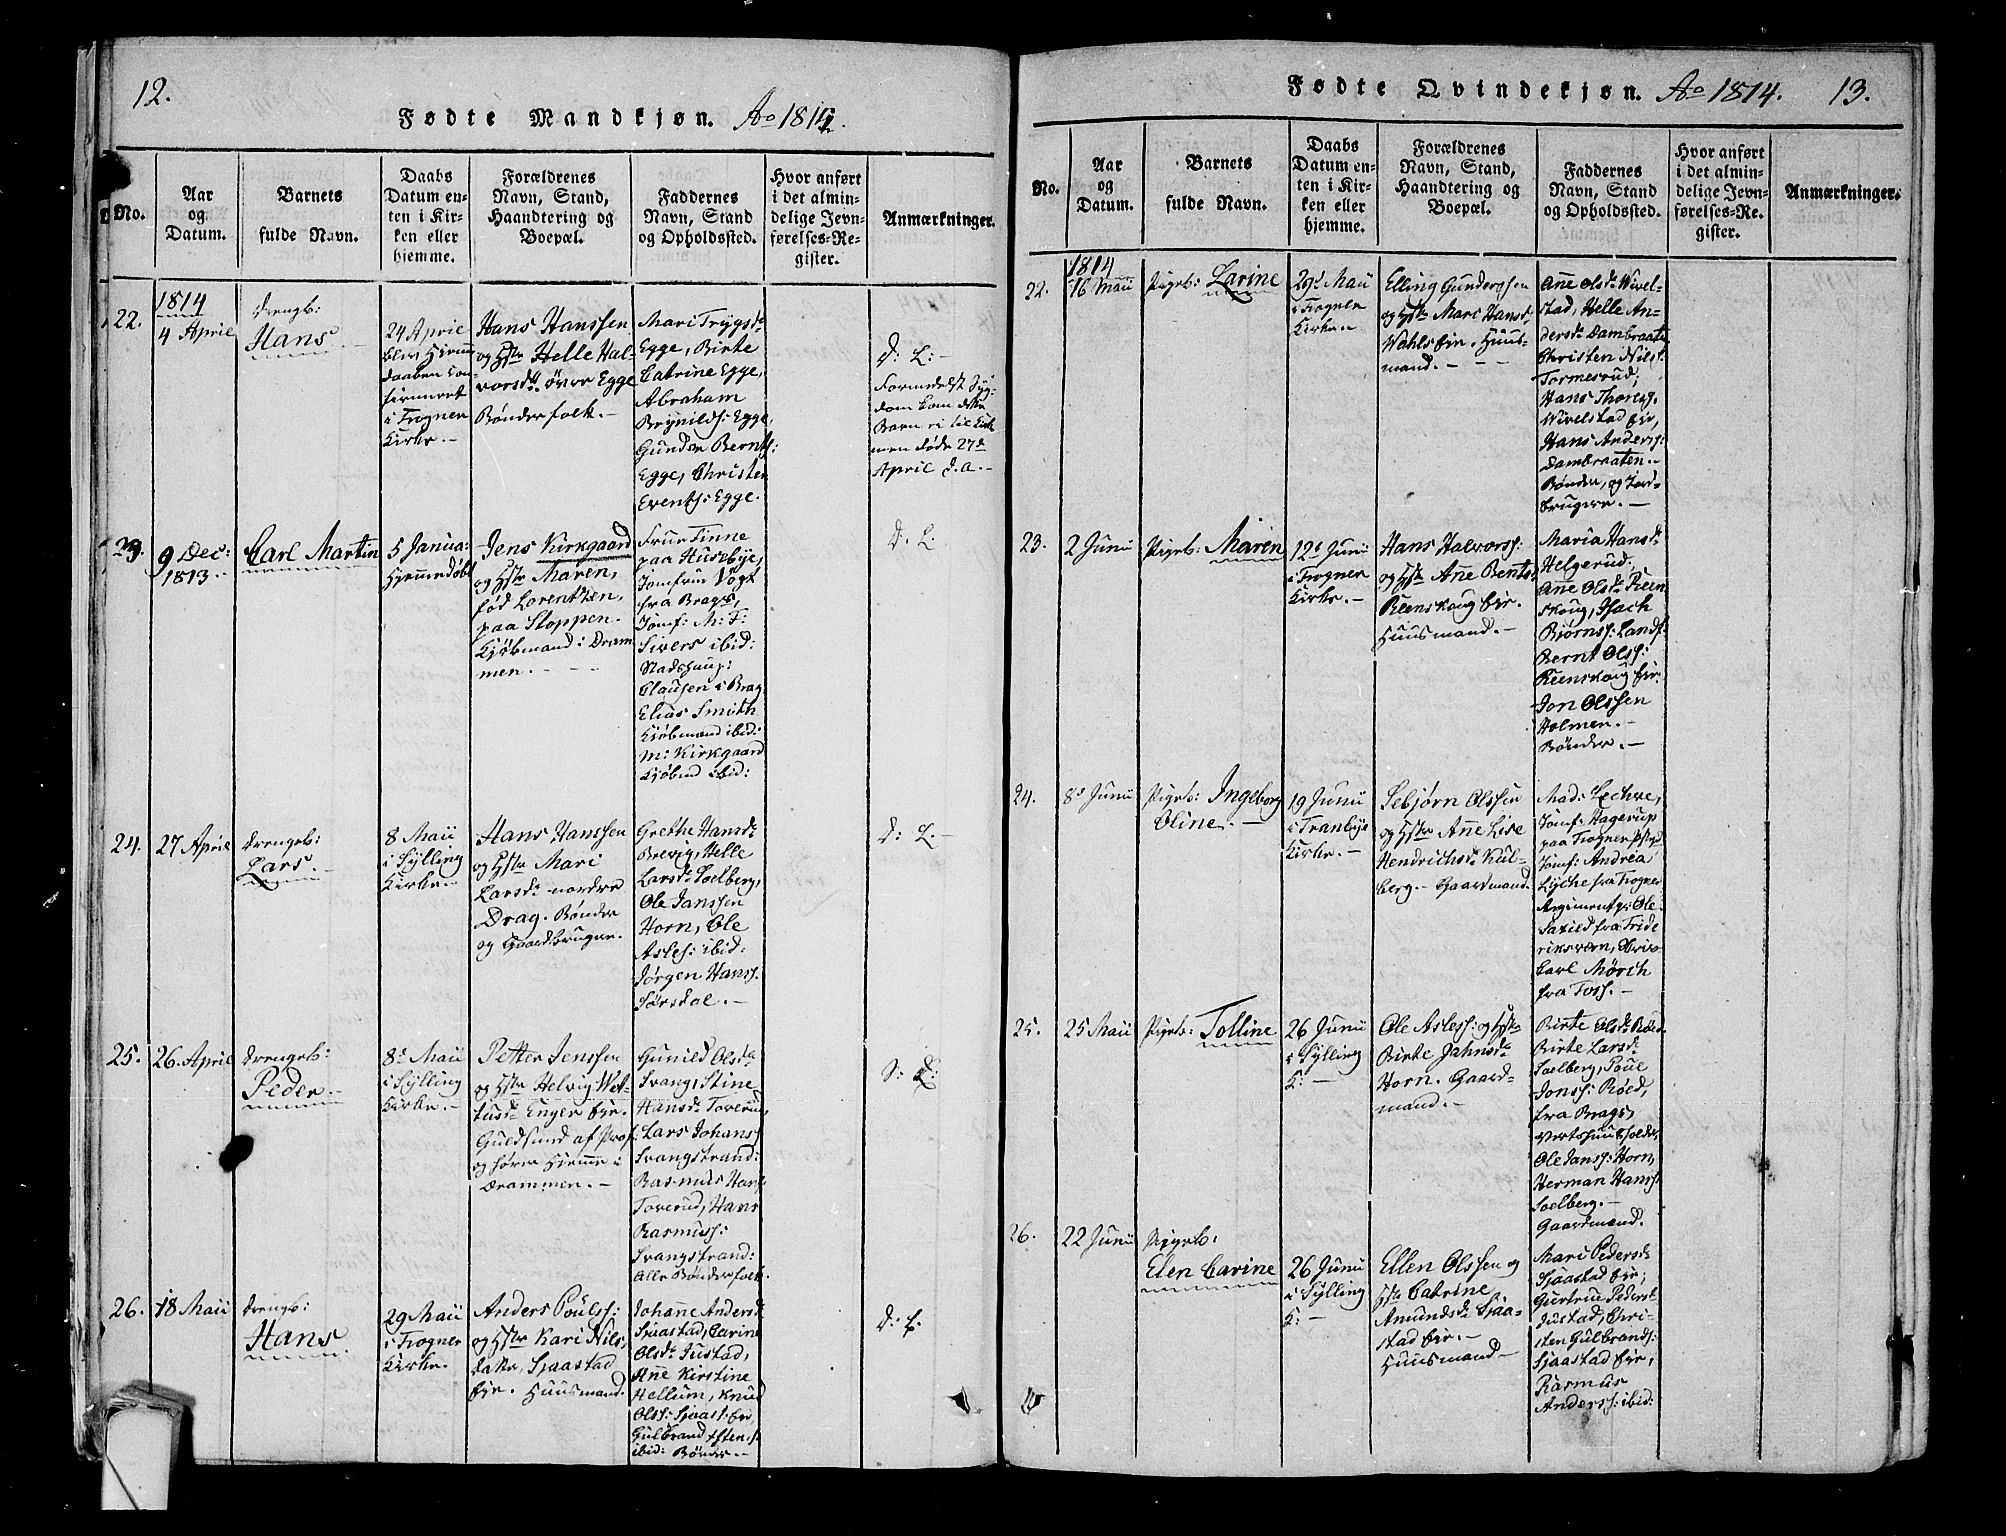 12.
Fødte Mandkjøn. Ao 1814.
No.
Aar
og
Datum.
Barnets
fulde Navn.
Daabs
Datum en-
ten i Kir-
ken eller
hjemme.
Forældrenes
Navn, Stand,
Haandtering og
Boepæl.
Faddernes
Navn, Stand
og Opholdssted.
Hvor anført
i det almin-
delige Jevn-
førelses-Re-
gister.
Anmærkninger.
22.
1814
4 April
drengb:
Hans.
24 April
blev hjemme
daaben con-
firmeret
i Frogner
Kirke.-
Hans Hanssen
og Hstr Helle Hal-
vorsdr. øvre Egge
Bønderfolk.-
Mari Trygsdr
Egge, Birte
Catrine Egge,
Abraham
Brynilds: Egge,
Gunder Bernts:
Egge, Christen
Events: Egge.
D: L:-
Formedelst Syg-
dom kom dette
Barn ei til Kirk
men døde 27de
April d.a.-
23.
9 Dec:
1813.
Carl Martin
5 Janua:
hjemmedøbt
Jens Kirkgaard
og Hstr Maren,
fød Lorentzen,
paa Stoppen.
Kjøbmand i Dram-
men.
Frue Finne
paa Husebye,
Jomfrue Vogt
fra Bragns,
Jomf: M: F:
Sivers ibid:
Stadshaup:
Clausen i Brag
Elias Smith
Kjøbmand ibid:
M: Kirkgaard
Kjøbmd ibid:
D. L:
24.
27 April
drengeb:
Lars.
8 Maii
i Sylling
Kirke.-
Hans Hanssen
og Hstr Mari
Larsdr nordre
Drag. Bønder
og Gaardbruger.
Grethe Hansdr
Brevig, Helle
Larsdr Soelberg,
Ole Janssen
Horn, Ole
Asles: ibid:
Jørgen Hanss:
Sørsdal.-
D: L.-
25.
26. April
drengeb:
Peder.
8de Maii
i Sylling
Kirke.-
Petter Jenssen
og Hstr Helvig Wet-
tusdr Enger Eje.
Guldsmd af Prof
og hører hjemme i
Drammen.-
Gunild Olsdr
Svang, Stine
Hansdr Toverud,
Lars Johans:
Svangstrand:
Rasmus Hans
Toverud, Hans
Rasmuss:
Svangstrand:
Alle Bønderfolk.
S: L:
26.
18 Maii
drengb:
Hans
29 Maii
i Frogner
Kirke.
Anders Poulss:
og Hstr Kari Nils-
datr, Sjaastad
Eje. Huusmand.
Johanne Andersdr
Sjaastad, Carine
Olsdr Justad,
Ane Kirstine
Hellum, Knud
Olss: Sjaast: Eje,
Gulbrand Istens:
ibid: Bønder.-
D: L.
Fødte Qvindekjøn. Ao 1814. 13.
No.
Aar
og
Datum.
Barnets
fulde Navn.
Daabs
Datum en-
ten i Kir-
ken eller
hjemme.
Forældrenes
Navn, Stand,
Haandtering og
Boepæl.
Faddernes
Navn, Stand
og Opholdssted.
Hvor anført
i det almin-
delige Jevn-
førelses-Re-
gister.
Anmærkninger.
22.
1814
16 Maii
Pigeb: Larine
29de Maii
i Frogner
Kirke.-
Elling Gunderssen
og Hstr Mari Hansdr
Wahls Eje. Huus-
mand.-
Ane Olsdr Wivel-
stad, Helle An-
dersdr Dambraaten
Christen Nils:
Tormesrud,
Hans Thores:
Wivelstad Eje,
Hans Anders:
Dambraaten.-
Bønder, og Jord-
brugere.-
23.
2 Junii
Pigeb: Maren
12te Junii
i Frogner
Kirke.-
Hans Halvors:
og Hstr Ane Bents
Reenskoug Eje.
Huusmand.-
Maria Hansdr
Helgerud,
Ane Olsdr Reen
skoug, Isach
Bjørnss: Landf:
Bernt Olss:
Reenskoug Eje.
Jon Olssen
Holmen.-
Bønder.-
24.
8de Junii
Pigeb: Ingeborg
Oline.-
19 Junii
i Tranbye
Kirke.-
Sebjørn Olssen
og Hstr Ane Lise
Hendrichsdr Kul-
berg.- Gaardmand.
Mad: Lechve,
Jomf: Hagerup
paa Frogner Pstgd
Jomf: Andrea
Lyche fra Frogner
Ole
fra Fride
riksværn,
Carl Mørch
fra Foss.-
25.
25 Maii
Pigeb: Tolline
26 Junii
i Sylling
K:-
Ole Asless: og Hstr
Birte Jahnsdr
Horn. Gaard-
mand.-
Birte Olsdr Røed
Birte Larsdr
Soelberg, Poul
Jonss: Røed,
fra Bragns,
Vertshuusholder,
Ole Janss: Horn,
Herman Hanss:
Soelberg.-
Gaardmænd.
26.
22 Junii
Pigeb:
Elen Carine
26 Junii
i Sylling
K:-
Ellen Olssen og
Hstr Catrine
Amundsdr Sjaa-
stad Eje.-
Huusmand-
Mari Pedersdr
Sjaastad Eje,
Gurtrue Pedersdr
Justad, Chri-
sten Gulbrands:
Sjaastad Eje,
Rasmus
Anderss: ibid: